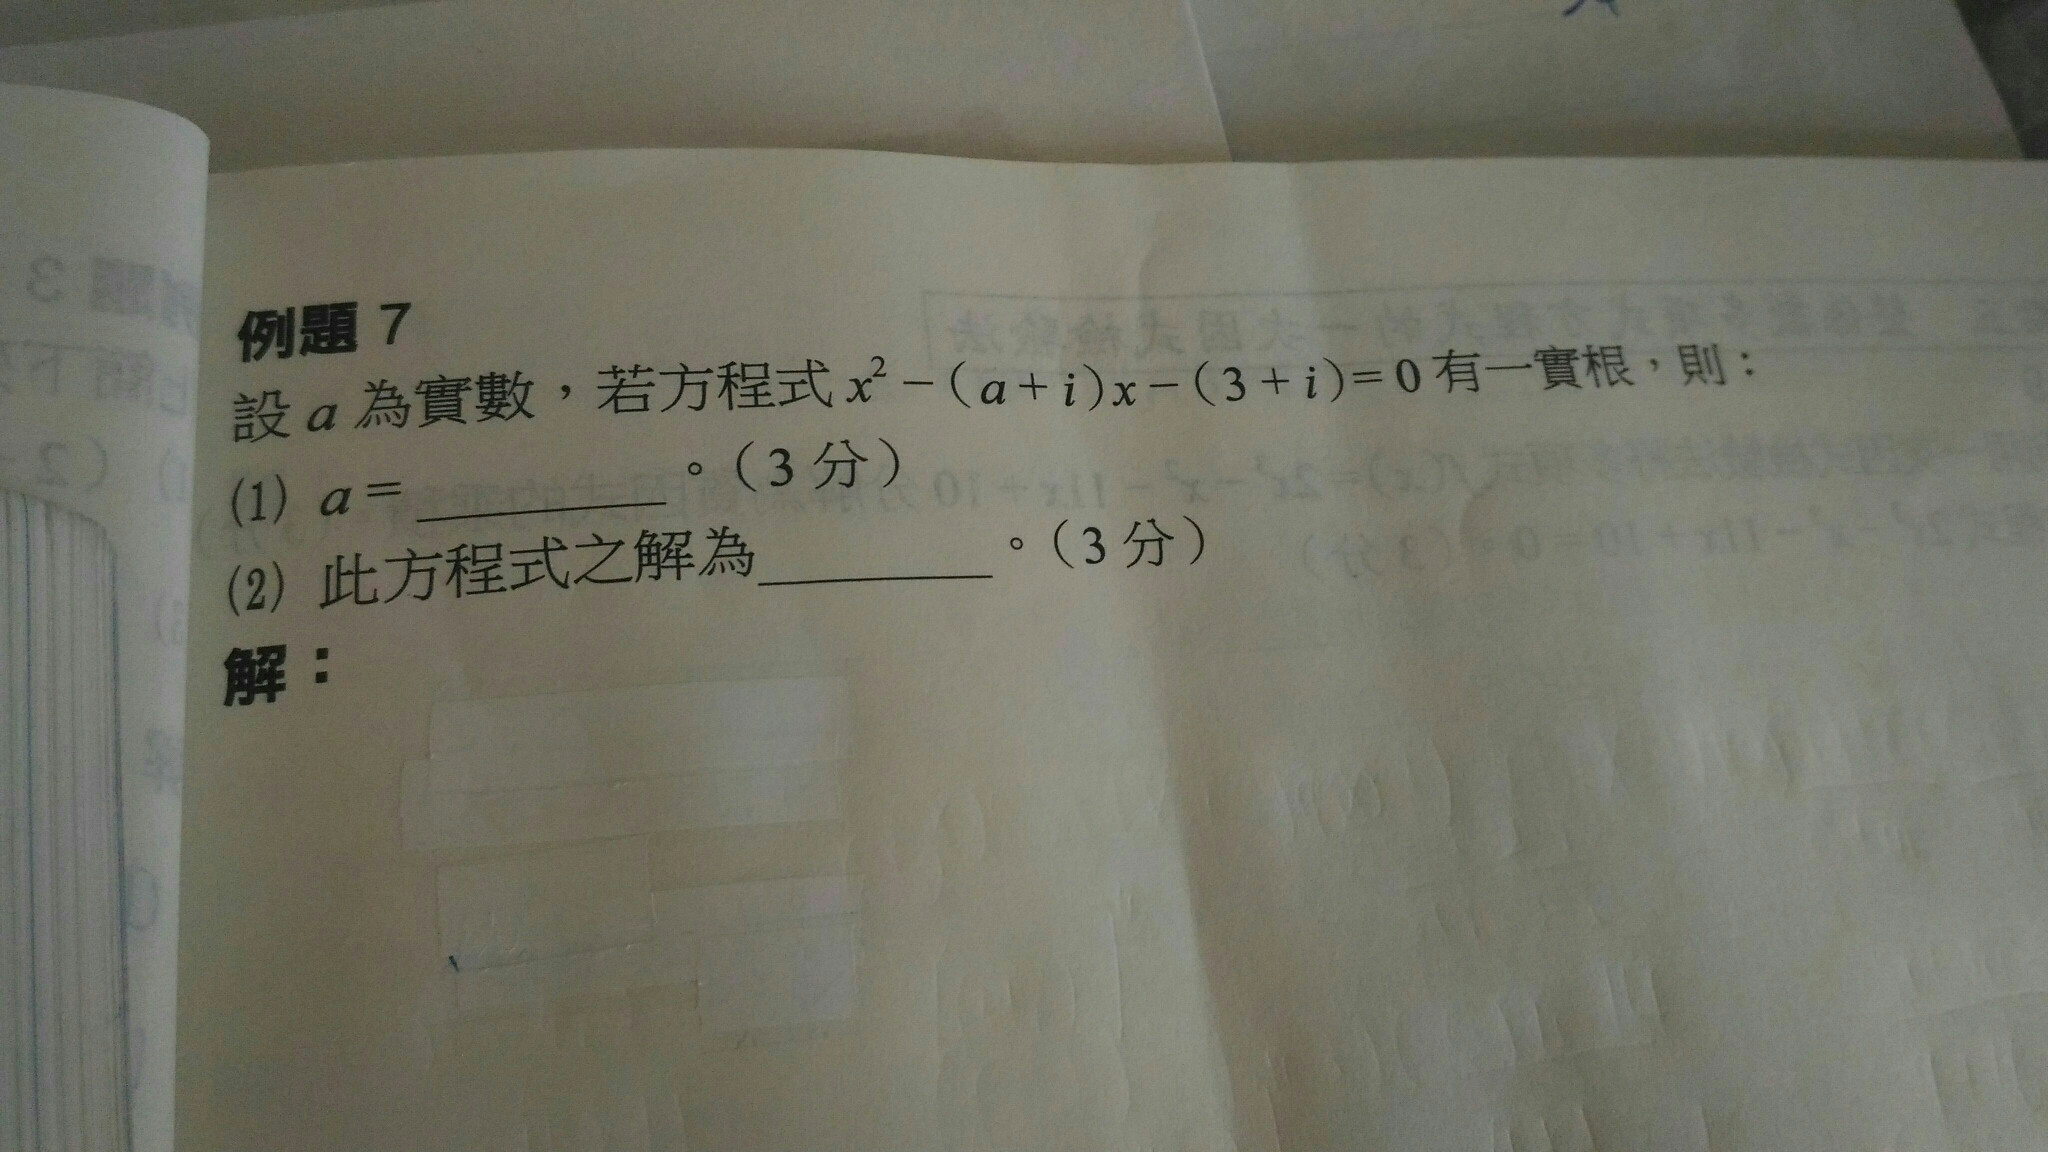 例題 7
設 a 為實數，若方程式 x² −（a + i）x −（3 + i）= 0 有一實根，則：
(1) a = ________。（3 分）
(2) 此方程式之解為________。（3 分）
解：